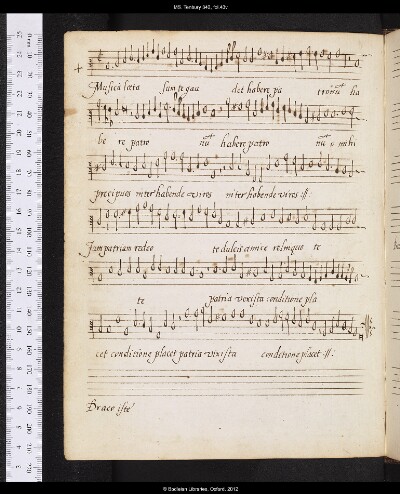 MS. Tenbury 340, fol.43v
Musica læta sum te gau det habere pa tronū ha
be re patro nū habere patro nū o mihi
præcipuos inter habende viros inter habende viros :||:
Jam patriam redeo te dulcis amice relinquo te
te patria vix ista conditione pla
cet conditione placet patria vix ista conditione placet :||:
Draco iste
© Bodleian Libraries, Oxford, 2012